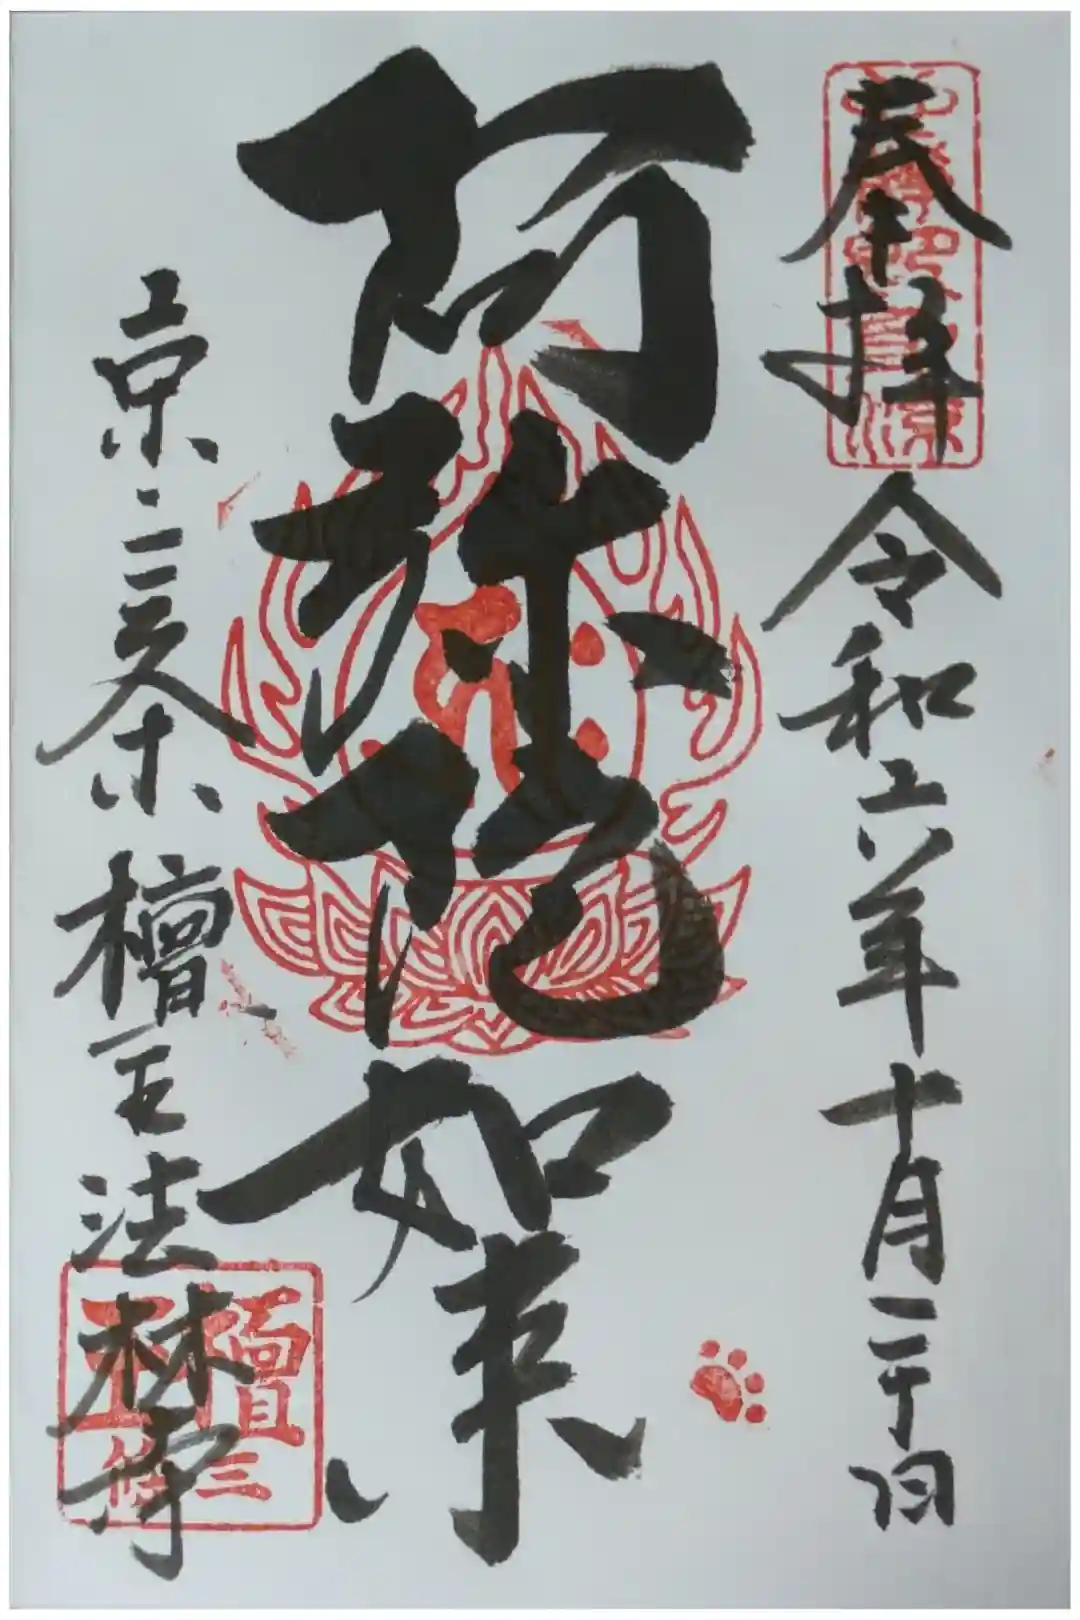 奉拝 令和六年十月二十日
阿弥陀如来
京・三条 檀王法林寺
檀王
三條